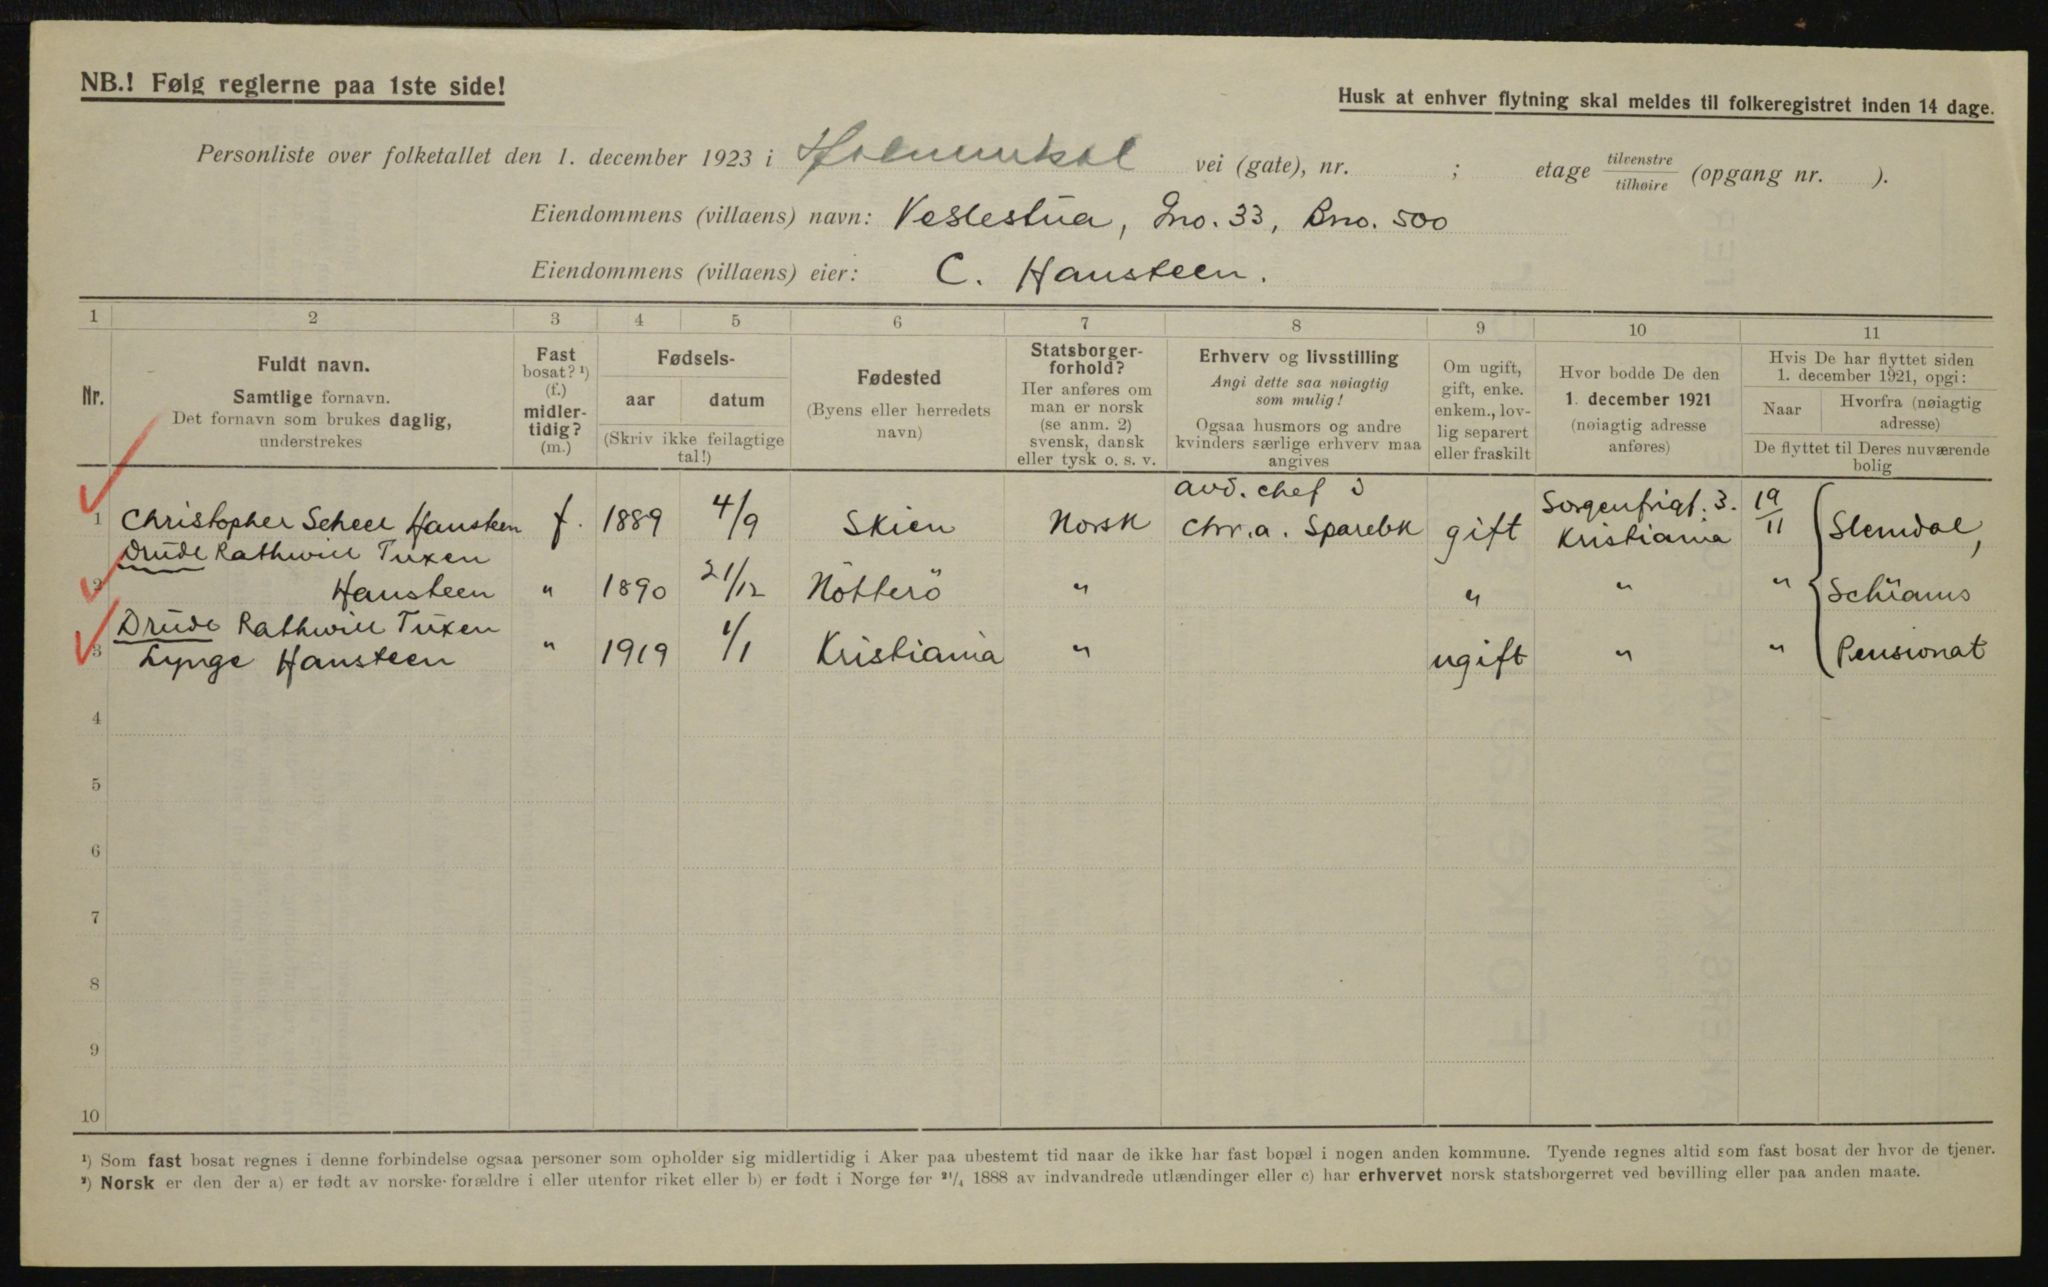 NB.! Følg reglerne paa 1ste side!
Husk at enhver flytning skal meldes til folkeregistret inden 14 dage.
Personliste over folketallet den 1. december 1923 i Holmenkol vei (gate), nr. ; etage tilvenstre/tilhøire (opgang nr. ).
Eiendommens (villaens) navn: Veslestua, Gno. 33, Bno. 500
Eiendommens (villaens) eier: C. Hansteen.
1 2 3 4 5 6 7 8 9 10 11
Nr.
Fuldt navn.
Samtlige fornavn.
Det fornavn som brukes daglig,
understrekes
Fast
bosat? ¹)
(f.)
midler-
tidig?
(m.)
Fødsels-
aar datum
(Skriv ikke feilagtige
tal!)
Fødested
(Byens eller herredets
navn)
Statsborger-
forhold?
Her anføres om
man er norsk
(se anm. 2)
svensk, dansk
eller tysk o. s. v.
Erhverv og livsstilling
Angi dette saa nøiagtig
som mulig!
Ogsaa husmors og andre
kvinders særlige erhverv maa
angives
Om ugift,
gift, enke.
enkem., lov-
lig separert
eller fraskilt
Hvor bodde De den
1. december 1921
(nøiagtig adresse
anføres)
Hvis De har flyttet siden
1. december 1921, opgi:
Naar
Hvorfra (nøiagtig
adresse)
De flyttet til Deres nuværende
bolig
avd. chef i
1 Christopher Scheel Hansteen f. 1889 4/9 Skien Norsk Chr.a. Sparebk gift Sorgenfrigt. 3. Kristiania 19/11 Slemdal,
Drude Rathwill Tuxen
2 Hansteen " 1890 21/12 Nötterö " " " " Schiøms
Drude Rathwill Tuxen
3 Lynge Hansteen " 1919 1/1 Kristiania " ugift " " Pensionat
4
5
6
7
8
9
10
¹) Som fast bosat regnes i denne forbindelse ogsaa personer som opholder sig midlertidig i Aker paa ubestemt tid naar de ikke har fast bopæl i nogen anden kommune. Tyende regnes altid som fast bosat der hvor de tjener.
²) Norsk er den der a) er født av norske forældre i eller utenfor riket eller b) er født i Norge før 21/4 1888 av indvandrede utlændinger eller c) har erhvervet norsk statsborgerret ved bevilling eller paa anden maate.